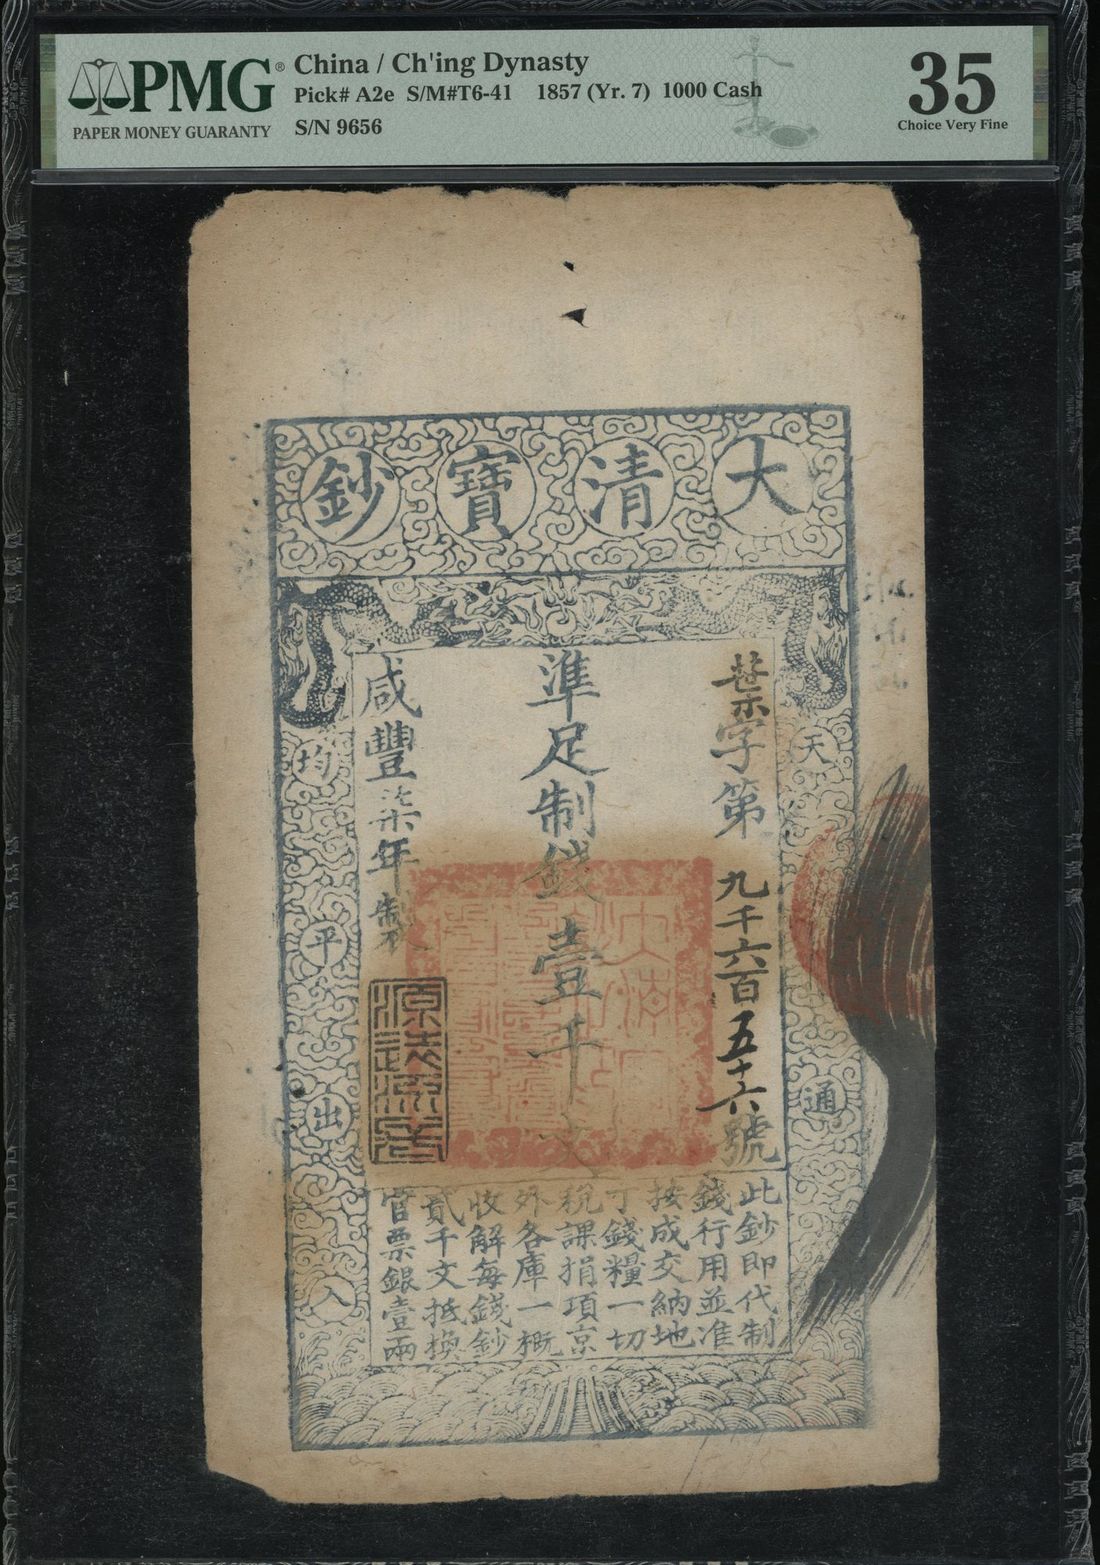 PMG®
PAPER MONEY GUARANTY
China / Ch'ing Dynasty
Pick# A2e S/M#T6-41 1857 (Yr. 7) 1000 Cash
S/N 9656
35
Choice Very Fine
大清寶鈔
字第九千六百五十六號
準足制錢壹千文
咸豐柒年製
天通
均平出入
此鈔即代制
錢行用並准
按成交納地
丁錢糧一切
稅課捐項京
外各庫一概
收解每錢鈔
貳千文抵換
官票銀壹兩